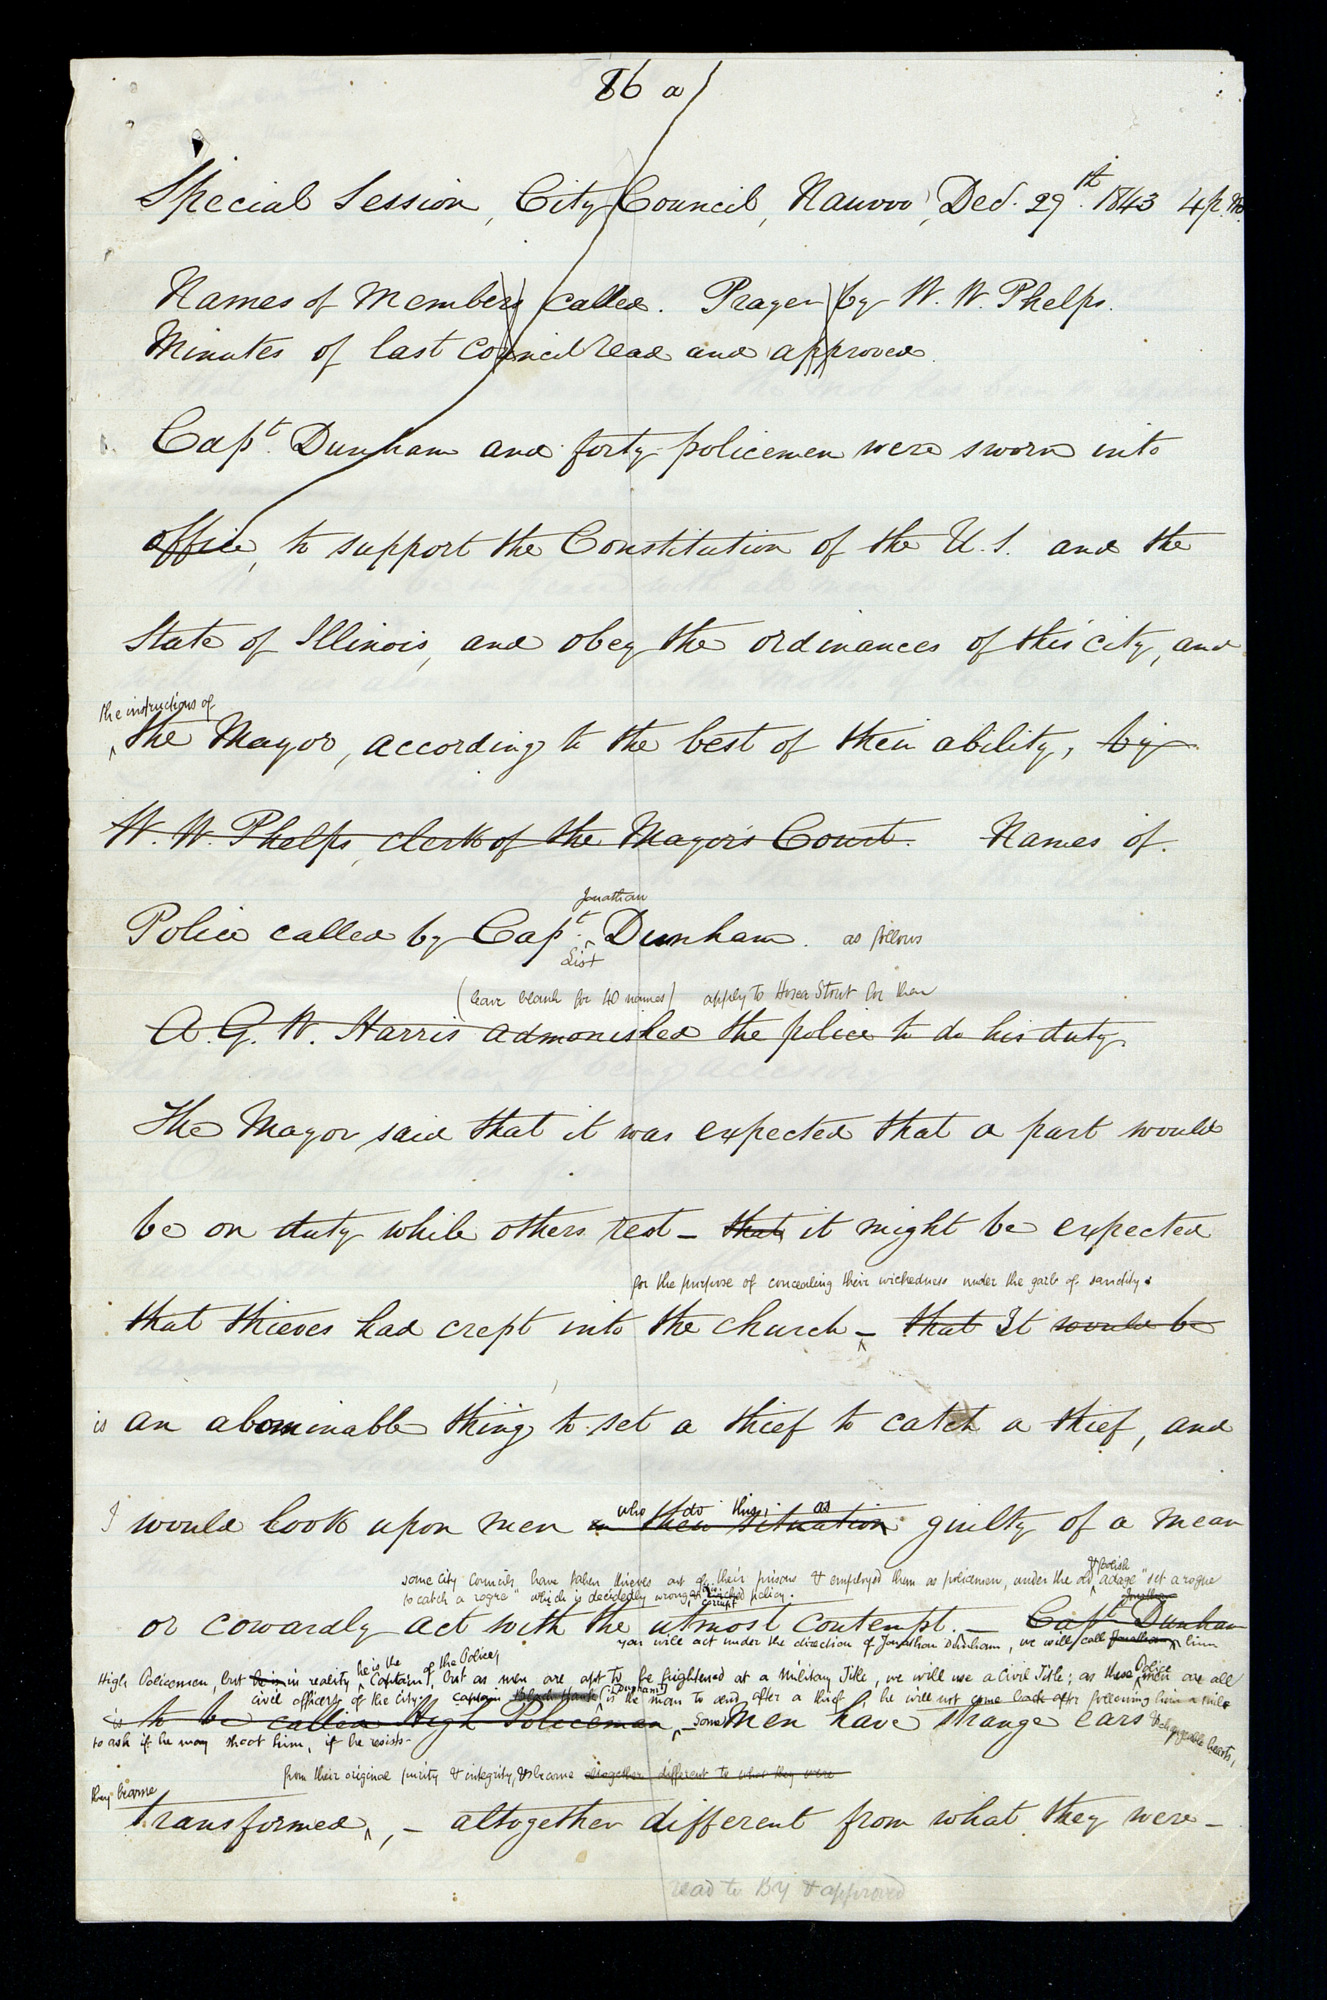 86 a
Special Session, City Council, Nauvoo, Dec. 29th. 1843 4 p.m.
Names of Members called. Prayer by W. W. Phelps.
Minutes of last Council read and approved.
Capt. Dunham and forty policemen were sworn into
office, to support the Constitution of the U.S. and the
State of Illinois, and obey the ordinances of this city, and
the instructions of
^ the Mayor, according to the best of their ability, by
W. W. Phelps, clerk of the Mayor's Court. Names of
Jonathan
Police called by Capt. ^ Dunham. as follows
List
(leave blank for 40 names) apply to Hosea Stout for them
A. G. W. Harris admonished the police to do his duty.
The Mayor said that it was expected that a part would
be on duty while others rest – that it might be expected
for the purpose of concealing their wickedness under the garb of sanctity.
that thieves had crept into the church ^ – that It would be
is an abominable thing to set a thief to catch a thief, and
who do this, as
I would look upon men in their situation guilty of a mean
& foolish
some city councils have taken thieves out of their prisons & employed them as policemen, under the old ^ adage "set a rogue
to catch a rogue" which is decidedly wrong & is wicked policy.
corrupt
Jonathan
or cowardly act with the utmost contempt. – Capt. Dunham
you will act under the direction of Jonathan Dunham, we will call Jonathan ^ him
he is the of the Police, Police
High Policeman, but he is in reality ^ Captain, but as men are apt to be frightened at a Military Title, we will use a Civil Title; as these ^ men are all
civil officers of the city. captain Black Hawk (Dunham) is the man to send after a thief, he will not come back after following him a mile
is to be called High Policeman, ^ – Some Men have strange ears & changeable hearts,
to ask if he may shoot him, if he resists –
from their original purity & integrity, & become altogether different to what they were
they become
transformed ^, – altogether different from what they were –
read to BY & approved